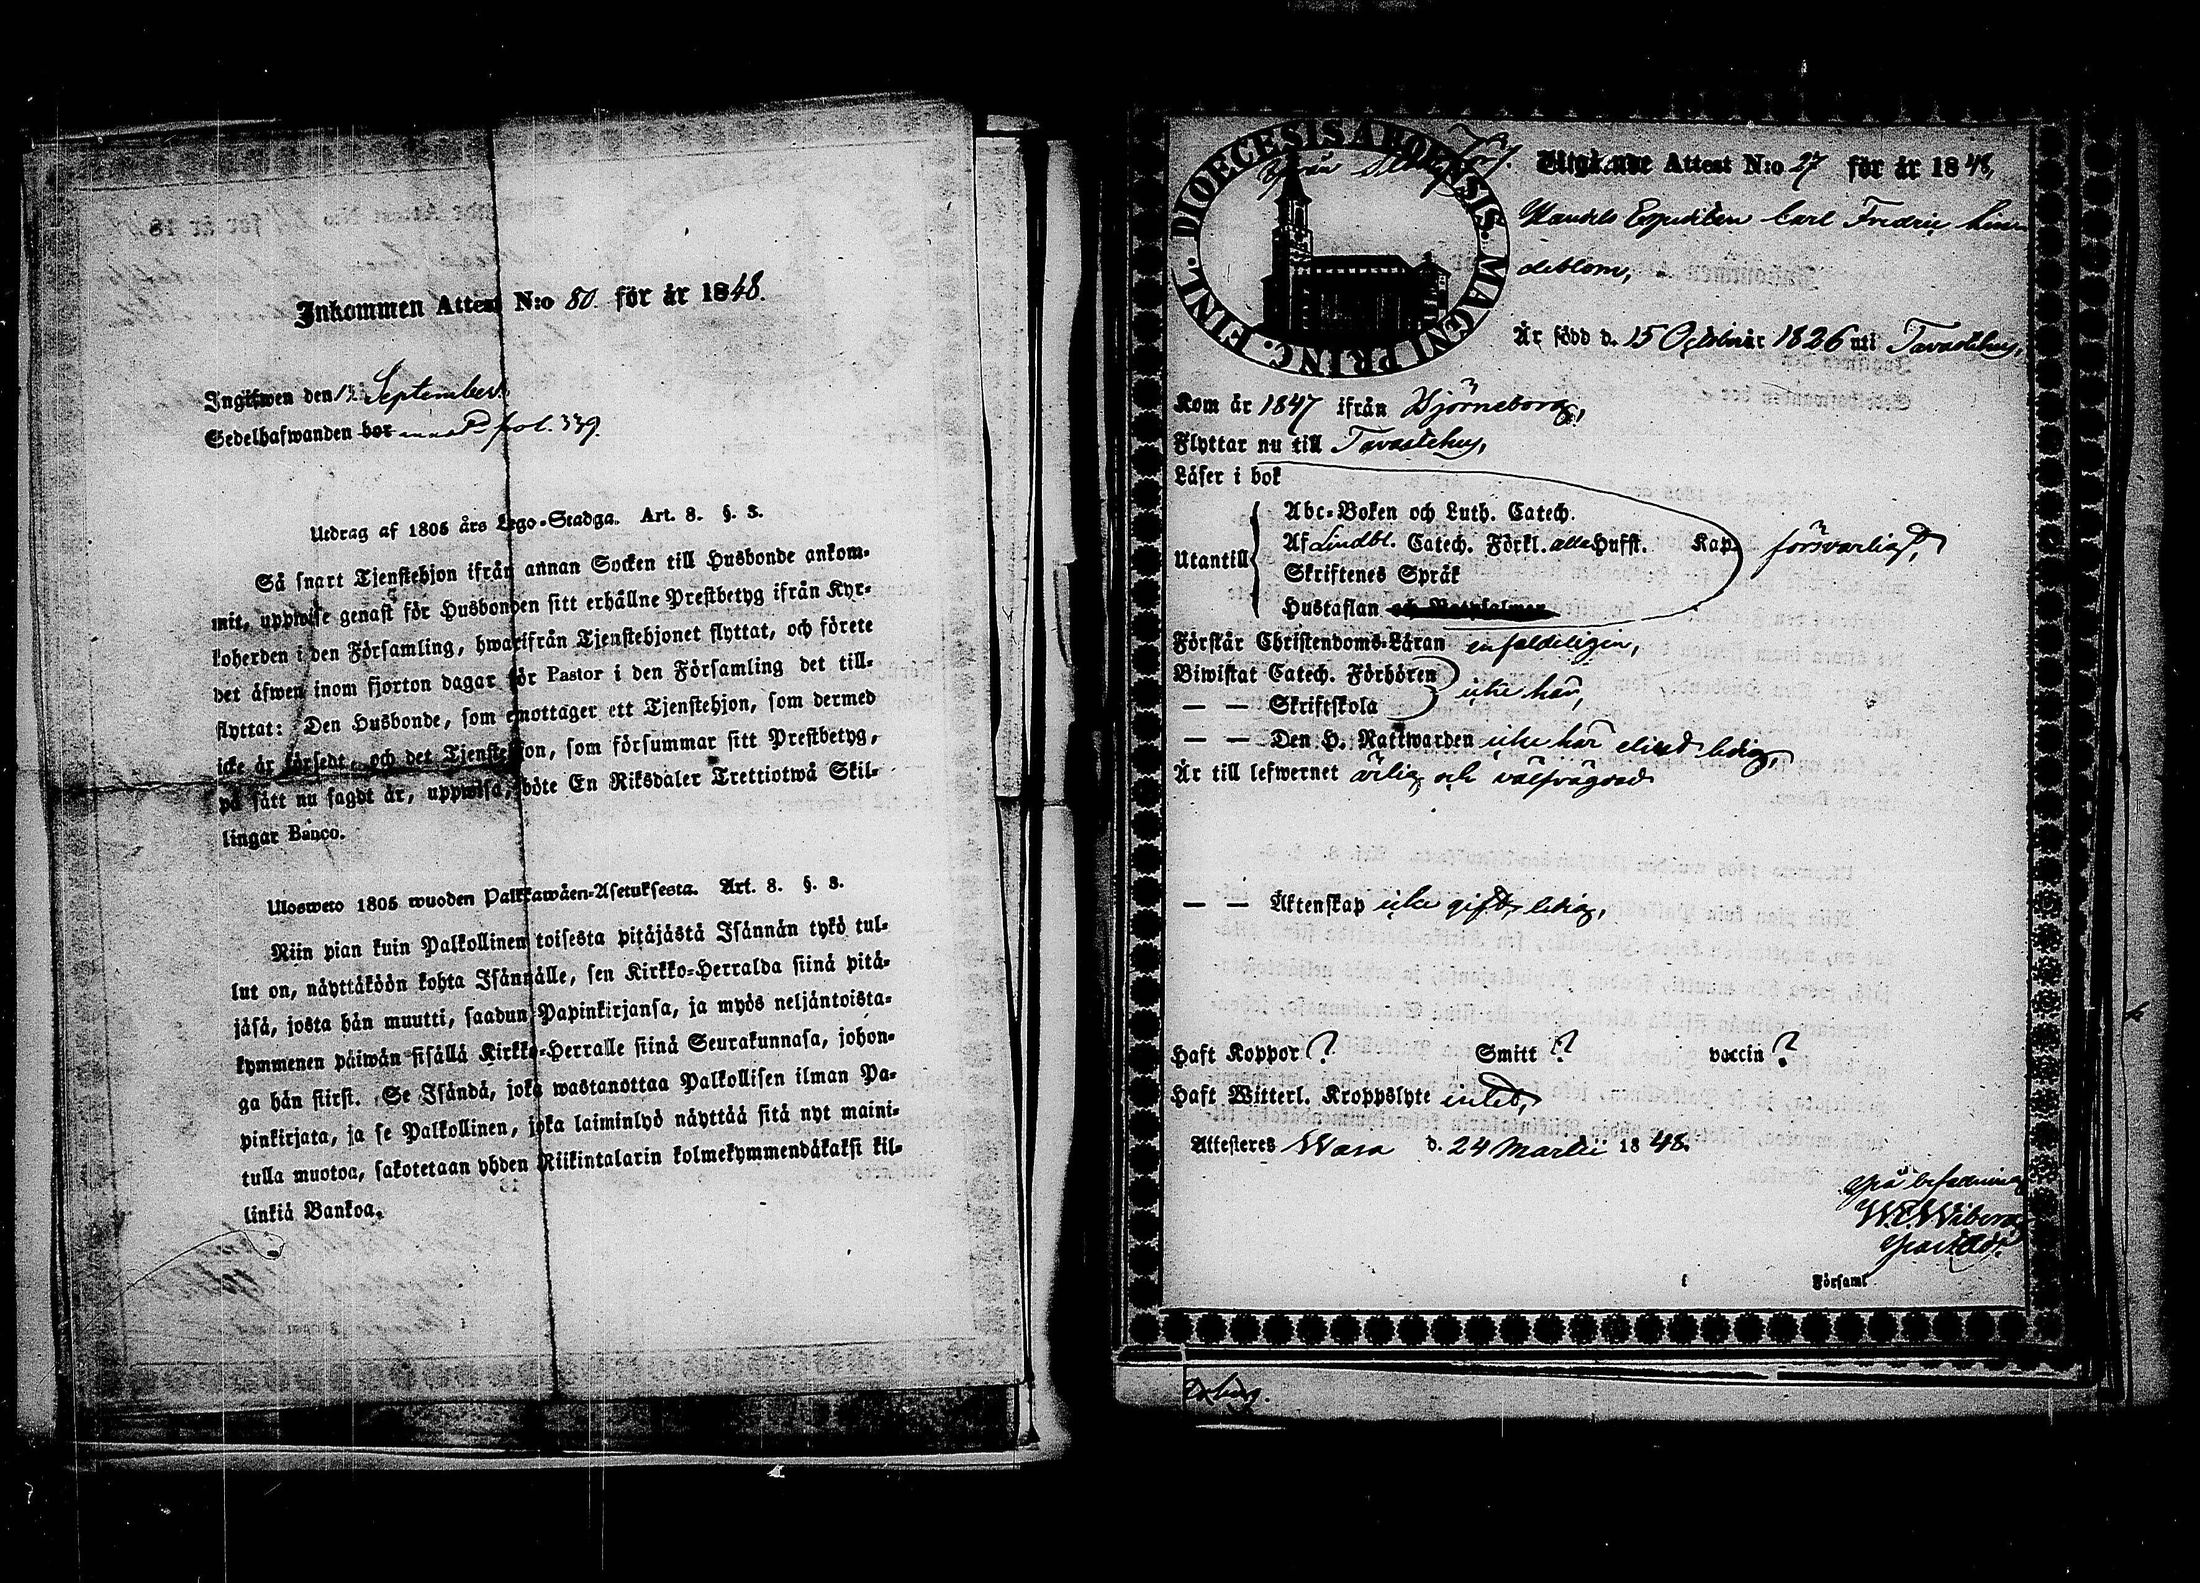 Inkommen Attest N:o 80. för år 1848.
Ingifwen den 13 September
Sedelhafwanden bor fol. 339.
Utdrag af 1805 års Lego-Stadga. Art. 8. §. 3.
Så snart Tjenstehjon ifrån annan Socken till Husbonde ankom-
mit, uppwise genast för Husbonden sitt erhållne Prestbetyg ifrån Kyr-
koherden i den Församling, hwarifrån Tjenstehjonet flyttat, och förete
det äfwen inom fjorton dagar för Pastor i den Församling det till-
flyttat: Den Husbonde, som emottager ett Tjenstehjon, som dermed
icke är försedt, och det Tjenstehjon, som försummar sitt Prestbetyg,
på sätt nu sagdt är, uppwisa, böte En Riksdaler Trettiotwå Skil-
lingar Banco.
Ulosweto 1805 wuoden Palkkawäen-Asetuksesta. Art. 8. §. 3.
Niin pian kuin Palkollinen toisesta pitäjästä Isännän tykö tul-
lut on, näyttäköön kohta Isännälle, sen Kirkko-Herralda siinä pitä-
jäsä, josta hän muutti, saadun Papinkirjansa, ja myös neljäntoista-
kymmenen päiwän sisällä Kirkko-Herralle siinä Seurakunnasa, johon-
ga hän siirsi. Se Isändä, joka wastanottaa Palkollisen ilman Pa-
pinkirjata, ja se Palkollinen, joka laiminlyö näyttää sitä nyt maini-
tulla muotoa, sakotetaan yhden Riikintalarin kolmekymmendäkaksi kil-
linkiä Bankoa.
DIOECESIS ABOENSIS. MAGNI PRINC. FINL.
Utgående Attest N:o 27 för år 1848,
Handels Expediten Carl Fredric Linn
deblom,
Är född d. 15 October 1826 uti Tavastehus,
Kom år 1847 ifrån Björneborg,
Flyttar nu till Tavastehus,
Läser i bok
Utantill
Abc-Boken och Luth. Catech.
Af Lindbl. Catech. Förkl. alla Hufst. Kap. försvarligt,
Skriftenes Språk
Hustaflan
Förstår Christendoms-Läran enfaldeligen,
Biwistat Catech. Förhören icke här,
— — Skriftskola
— — Den H. Nattwarden icke här elliest ledig,
Är till lefwernet ärlig och välfrägdad
— — Äktenskap icke gift, ledig,
Haft Koppor ? Smitt ? vaccin ?
Haft Witterl. Kroppslyte intet,
Attesteres Wasa d. 24 Martii 1848.
På befallning
W. E. Wiberg
Församl